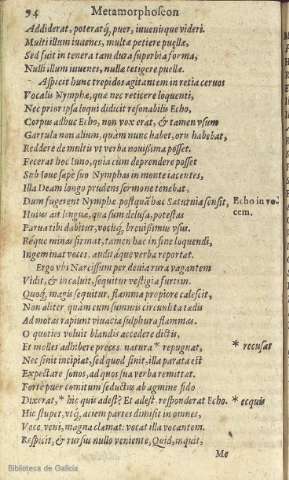 94 Metamorphoseon
Addiderat, poteratq́, puer, iuuenisque videri.
Multi illum iuuenes, multæ petiere puellæ,
Sed fuit in tenera tam dura superbia forma,
Nulli illum iuuenes, nullæ tetigere puellæ.
Aspicit hunc trepidos agitantem in retia ceruos
Vocalis Nymphe, quæ nec reticere loquenti,
Nec prior ipsa loqui didicit resonabilis Echo,
Corpus adhuc Echo, non vox erat, & tamen vsum
Garrula non alium, quàm nunc habet, oris habebat,
Reddere de multis vt verba nouissima posset.
Fecerat hoc Iuno, quia cùm deprendere posset
Sub Ioue sæpè suo Nymphas in monte iacentes,
Illa Deam longo prudens sermone tenebat,
Dum fugerent Nymphæ. postquã hæc Saturnia sensit, Echo in vo-
Huius ait linguæ, qua sum delusa, potestas cem.
Parua tibi dabitur, vocisq́; breuissimus vsus.
Réque minas firmat, tamen hæc in fine loquendi,
Ingeminat voces. auditáque verba reportat.
Ergo vbi Narcissum per deuia rura vagantem
Vidit, & incaluit, sequitur vestigia furtim.
Quoq́; magis sequitur, flamma propiore calescit,
Non aliter quàm cum summis circunlita tædis
Ad motas rapiunt viuacia sulphura flammas.
O quoties voluit blandis accedere dictis,
Et molles adhibere preces. natura * repugnat, * recusat
Nec sinit incipiat, sed quod sinit, illa parata est
Expectare sonos, ad quos sua verba remittat.
Fortè puer comitum seductus ab agmine fido
Dixerat, * hîc quis adest? Et adest. responderat Echo. * ecquis
Hic stupet, vtq́; aciem partes dimisit in omnes,
Voce, veni, magna clamat: vocat illa vocantem.
Respicit, & rursus nullo veniente, Quid, inquit,
Me
Biblioteca de Galicia